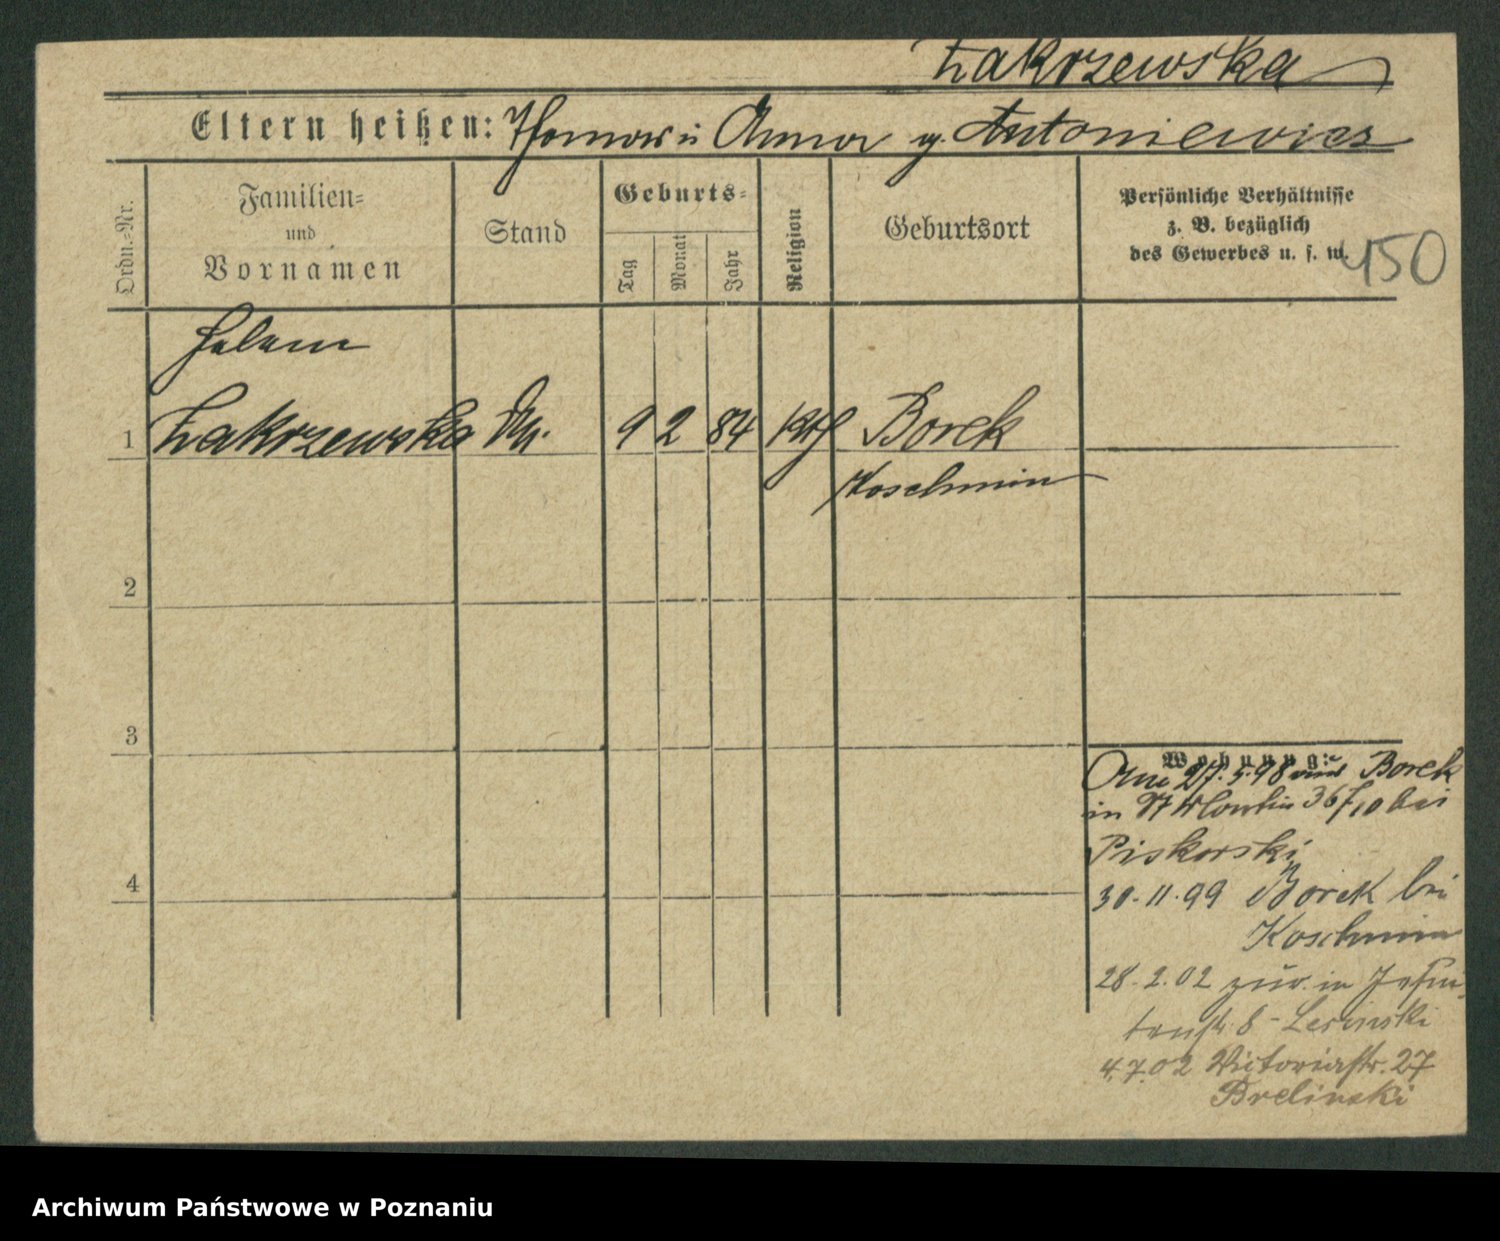 Zakrzewska
Eltern heißen: Thomas u Anna g. Antoniewicz
Ordn.-Nr.
Familien-
und
Vornamen
Stand
Geburts-
Tag
Monat
Jahr
Religion
Geburtsort
Persönliche Verhältnisse
z. B. bezüglich
des Gewerbes u. s. w.
150
Helene
1 Zakrzewska 9 2 84 kth Borek
Koschmin
2
3
4
Wohnung:
Am 27.5.98 aus Borek
in St 36/10 bei
Piskorski
30.11.99 n Borek bei
Koschmin
28.2.02 zur. in Jesui-
tenstr 8 - Lesinski
4.7.02 Victoriastr. 27
Brelinski
Archiwum Państwowe w Poznaniu